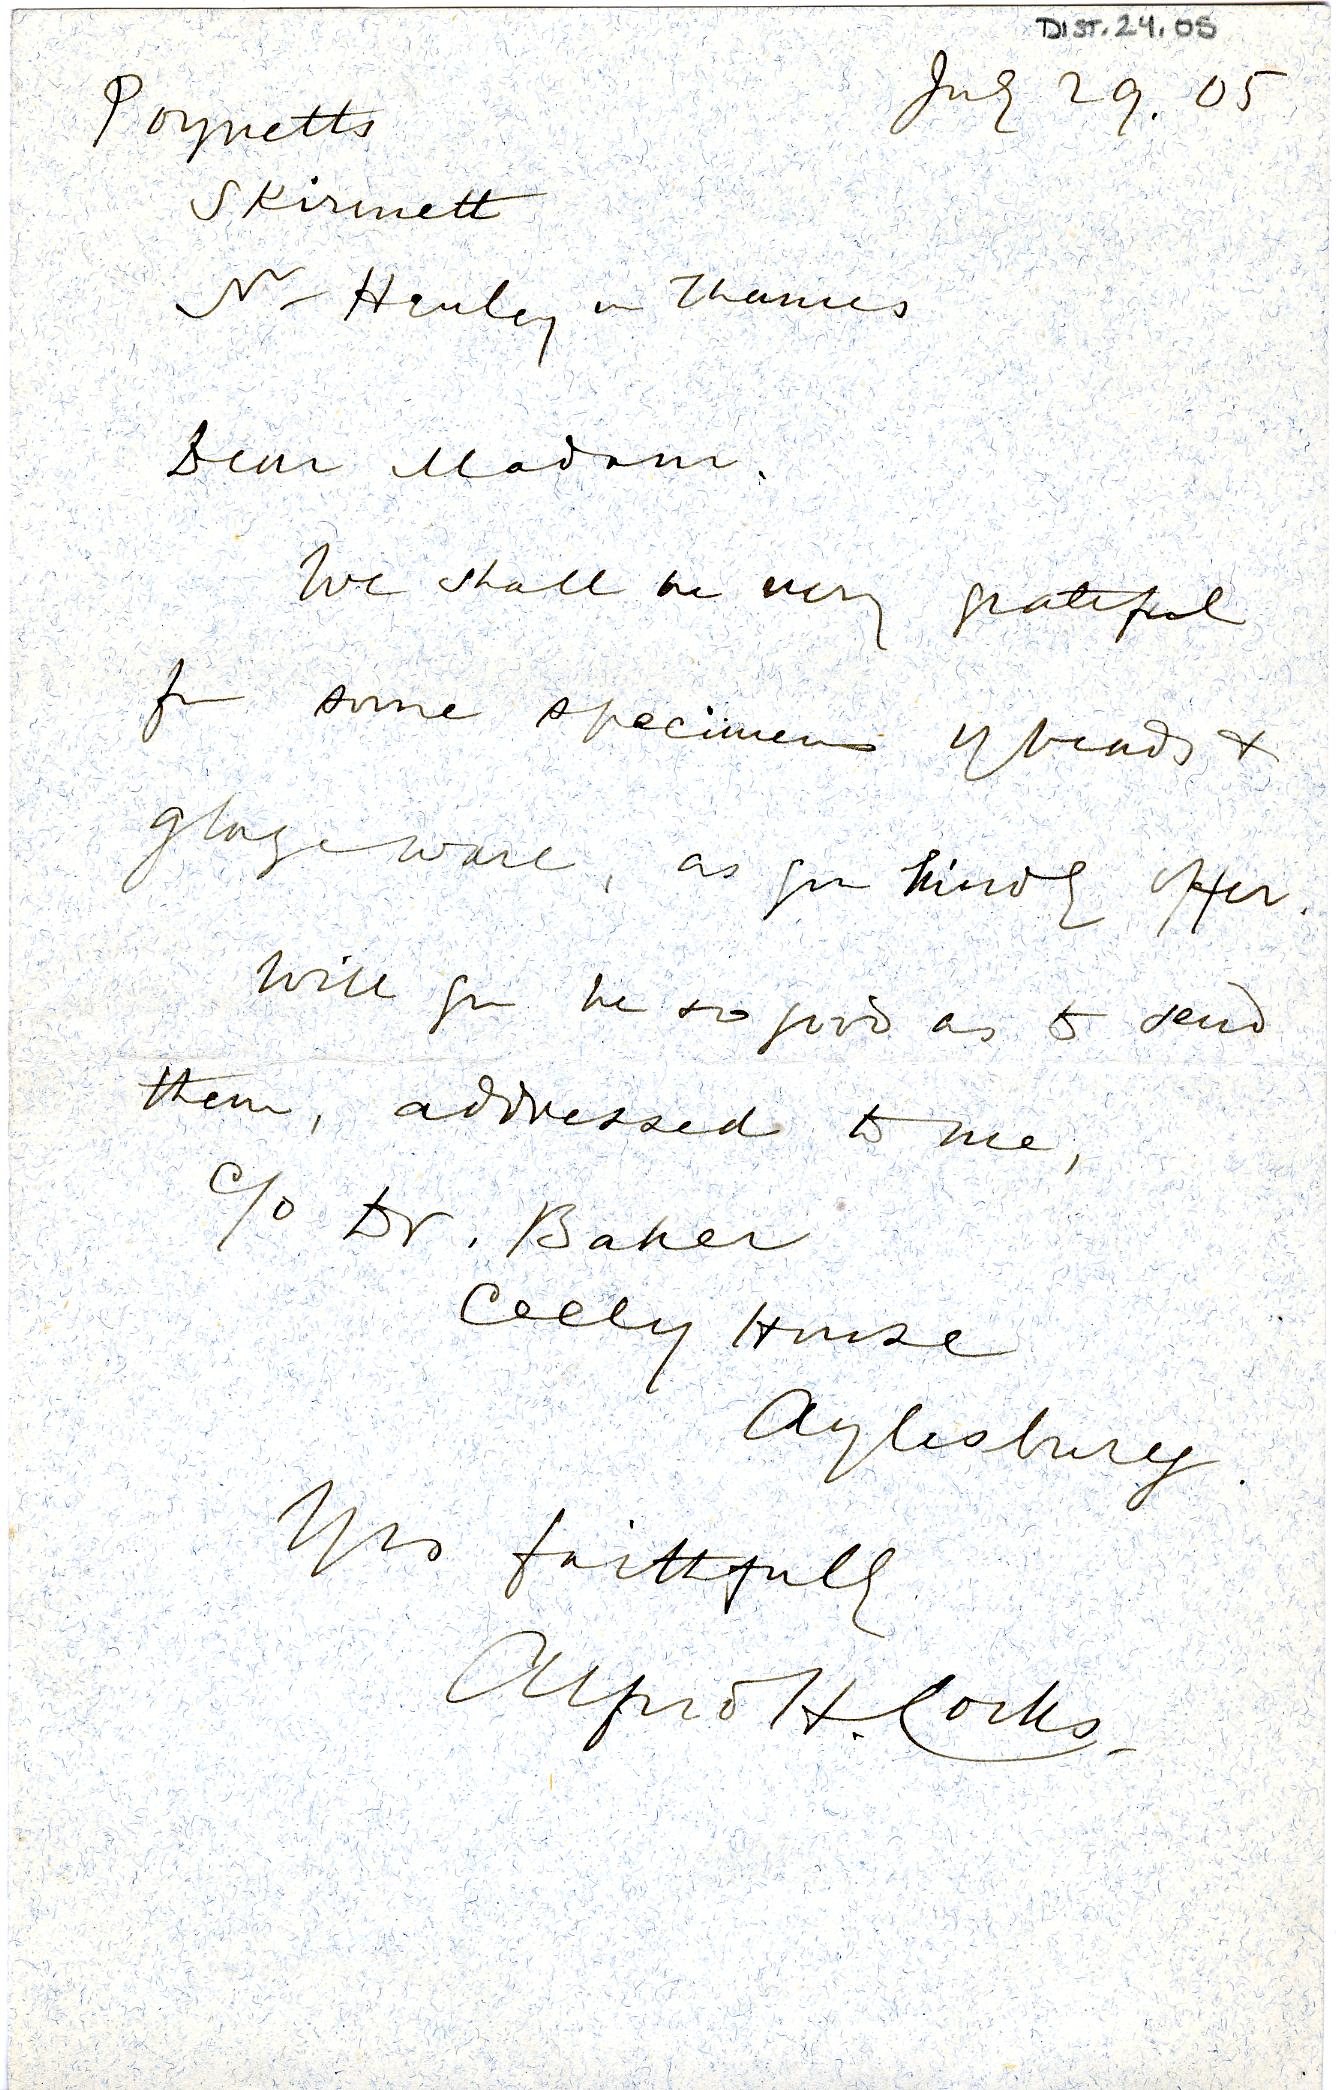 DIST.24.05
July 29. 05
Poynetts
Skirmett
Nr Henley on Thames
Dear Madam.
We shall be very grateful
for some specimens of beads &
glaze ware, as you kindly offer.
Will you be so good as to send
them, addressed to me,
c/o Dr. Baker
Ceely House
Aylesbury.
Yrs faithfully
Alfred H. Cocks.